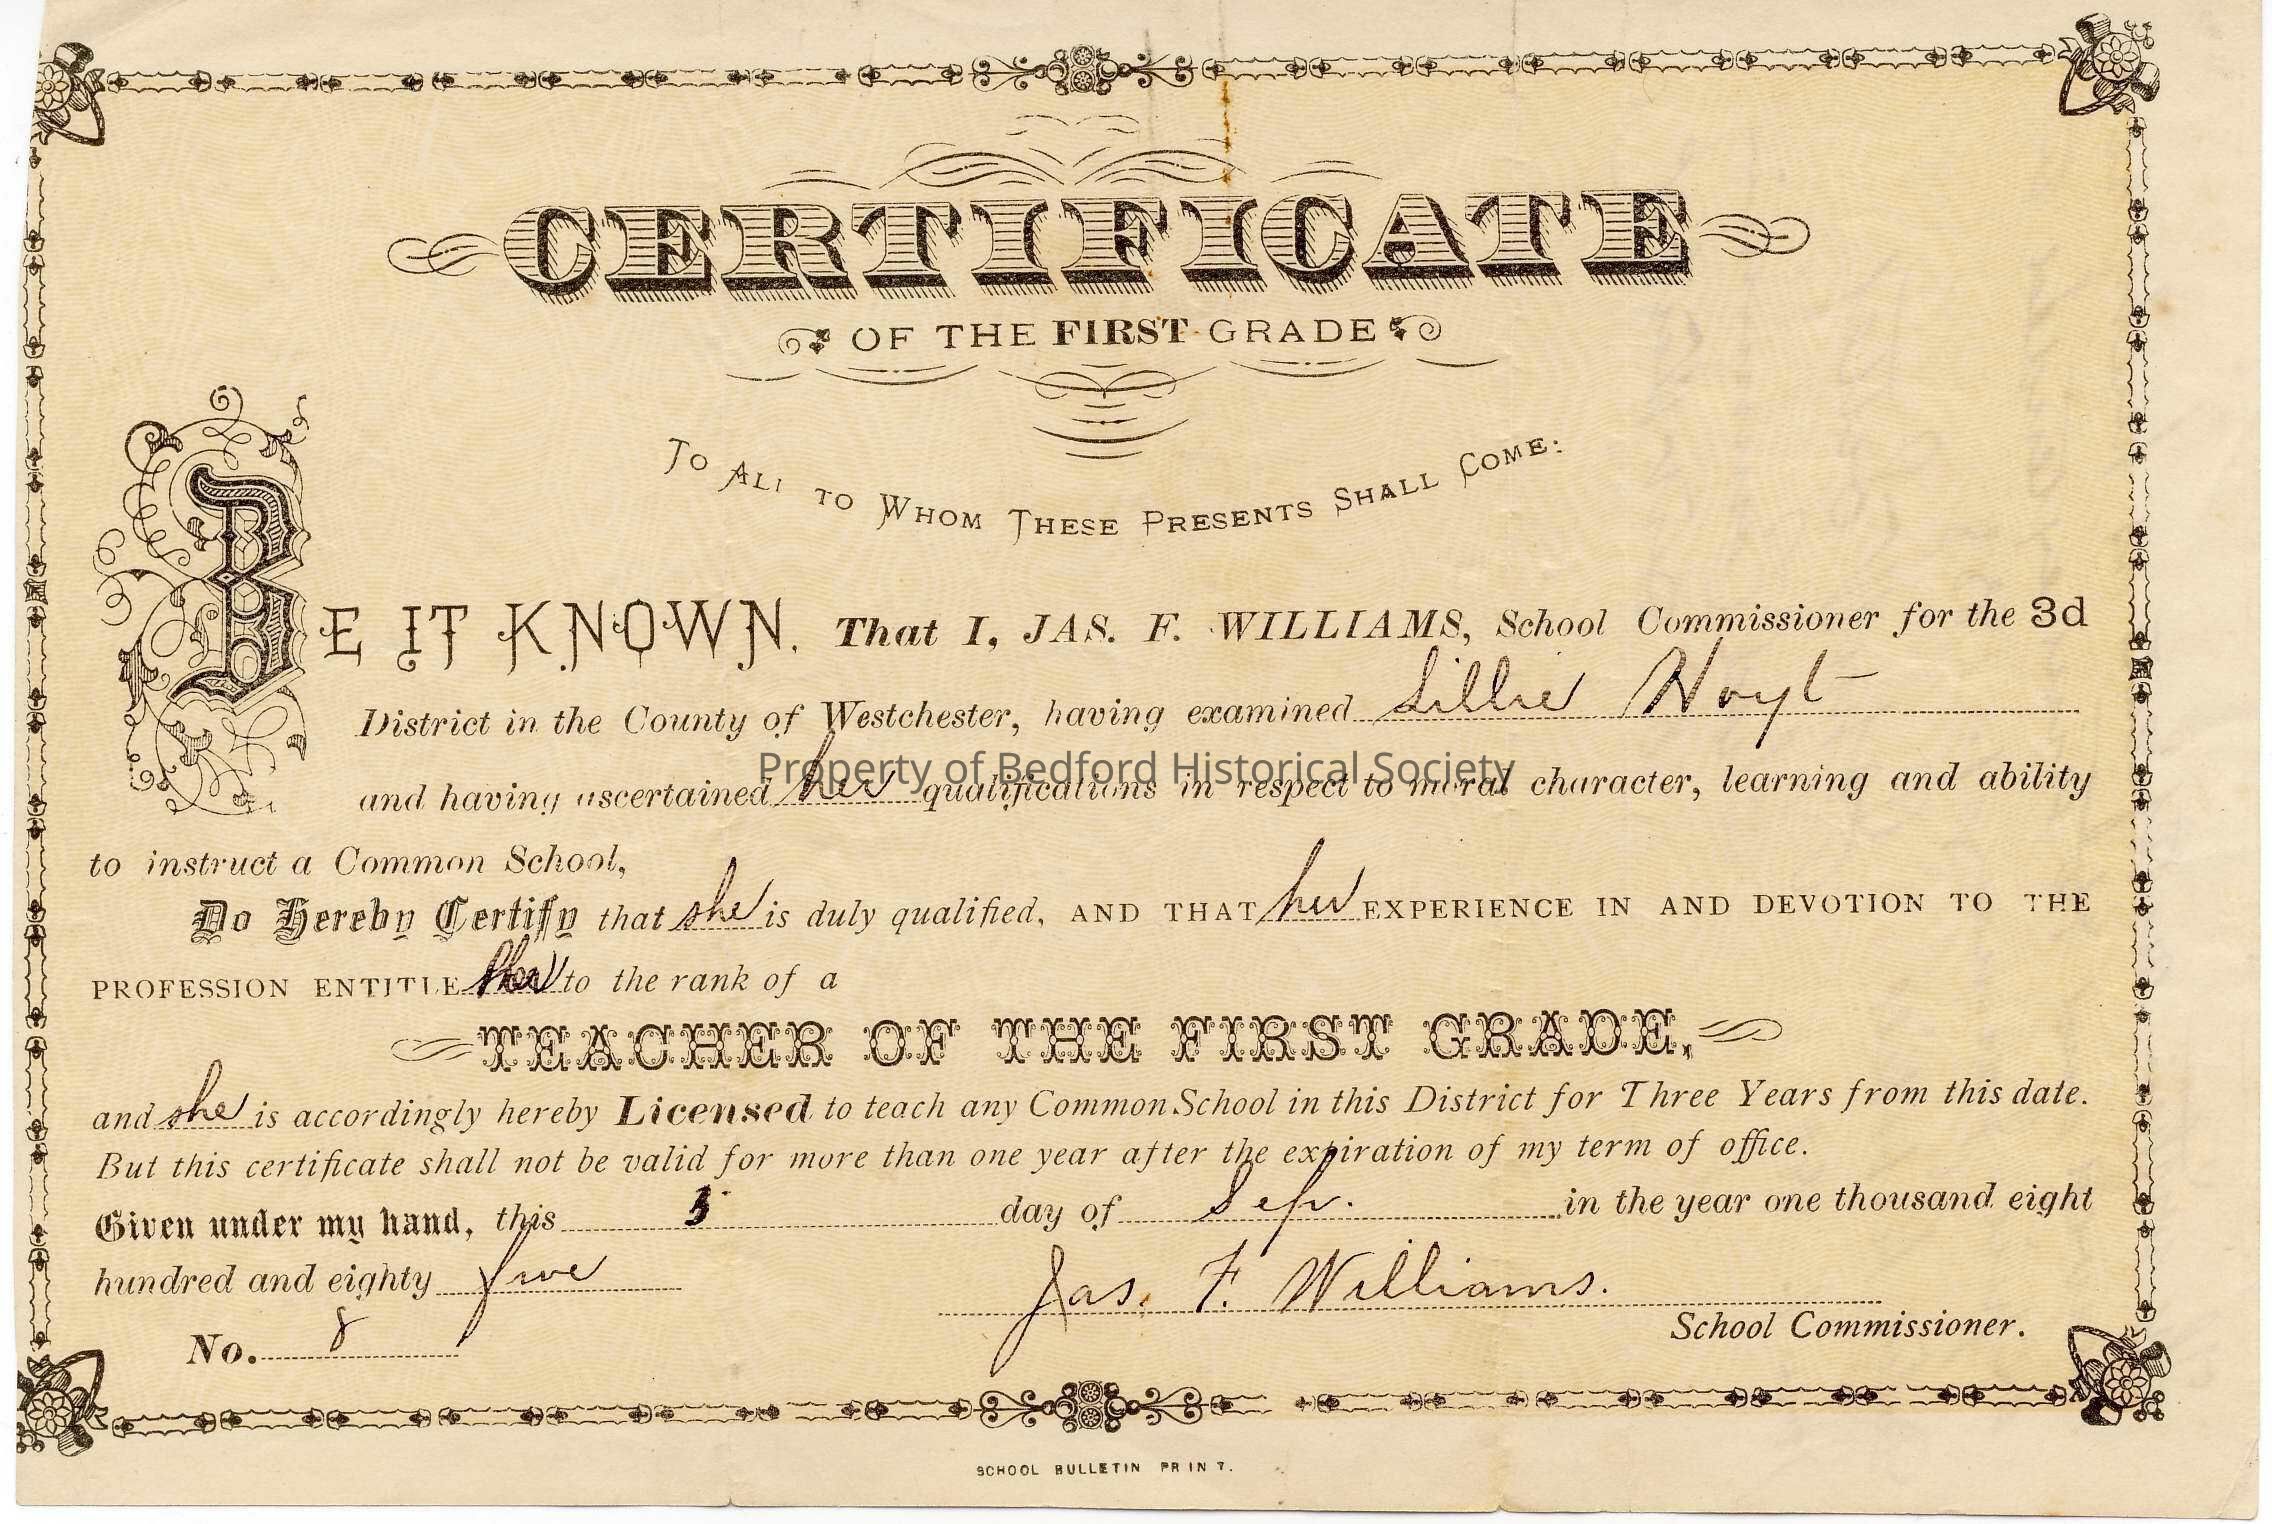 CERTIFICATE
OF THE FIRST GRADE
TO ALL TO WHOM THESE PRESENTS SHALL COME:
BE IT KNOWN. That I, JAS. F. WILLIAMS, School Commissioner for the 3d
District in the County of Westchester, having examined Lillie Hoyt
Property of Bedford Historical Society
and having ascertained her qualifications in respect to moral character, learning and ability
to instruct a Common School,
Do Hereby Certify that she is duly qualified, AND THAT her EXPERIENCE IN AND DEVOTION TO THE
PROFESSION ENTITLE her to the rank of a
TEACHER OF THE FIRST GRADE,
and she is accordingly hereby Licensed to teach any Common School in this District for Three Years from this date.
But this certificate shall not be valid for more than one year after the expiration of my term of office.
Given under my hand, this day of Sep. in the year one thousand eight
hundred and eighty five
Jas. F. Williams.
School Commissioner.
No. 8
SCHOOL BULLETIN PRINT.